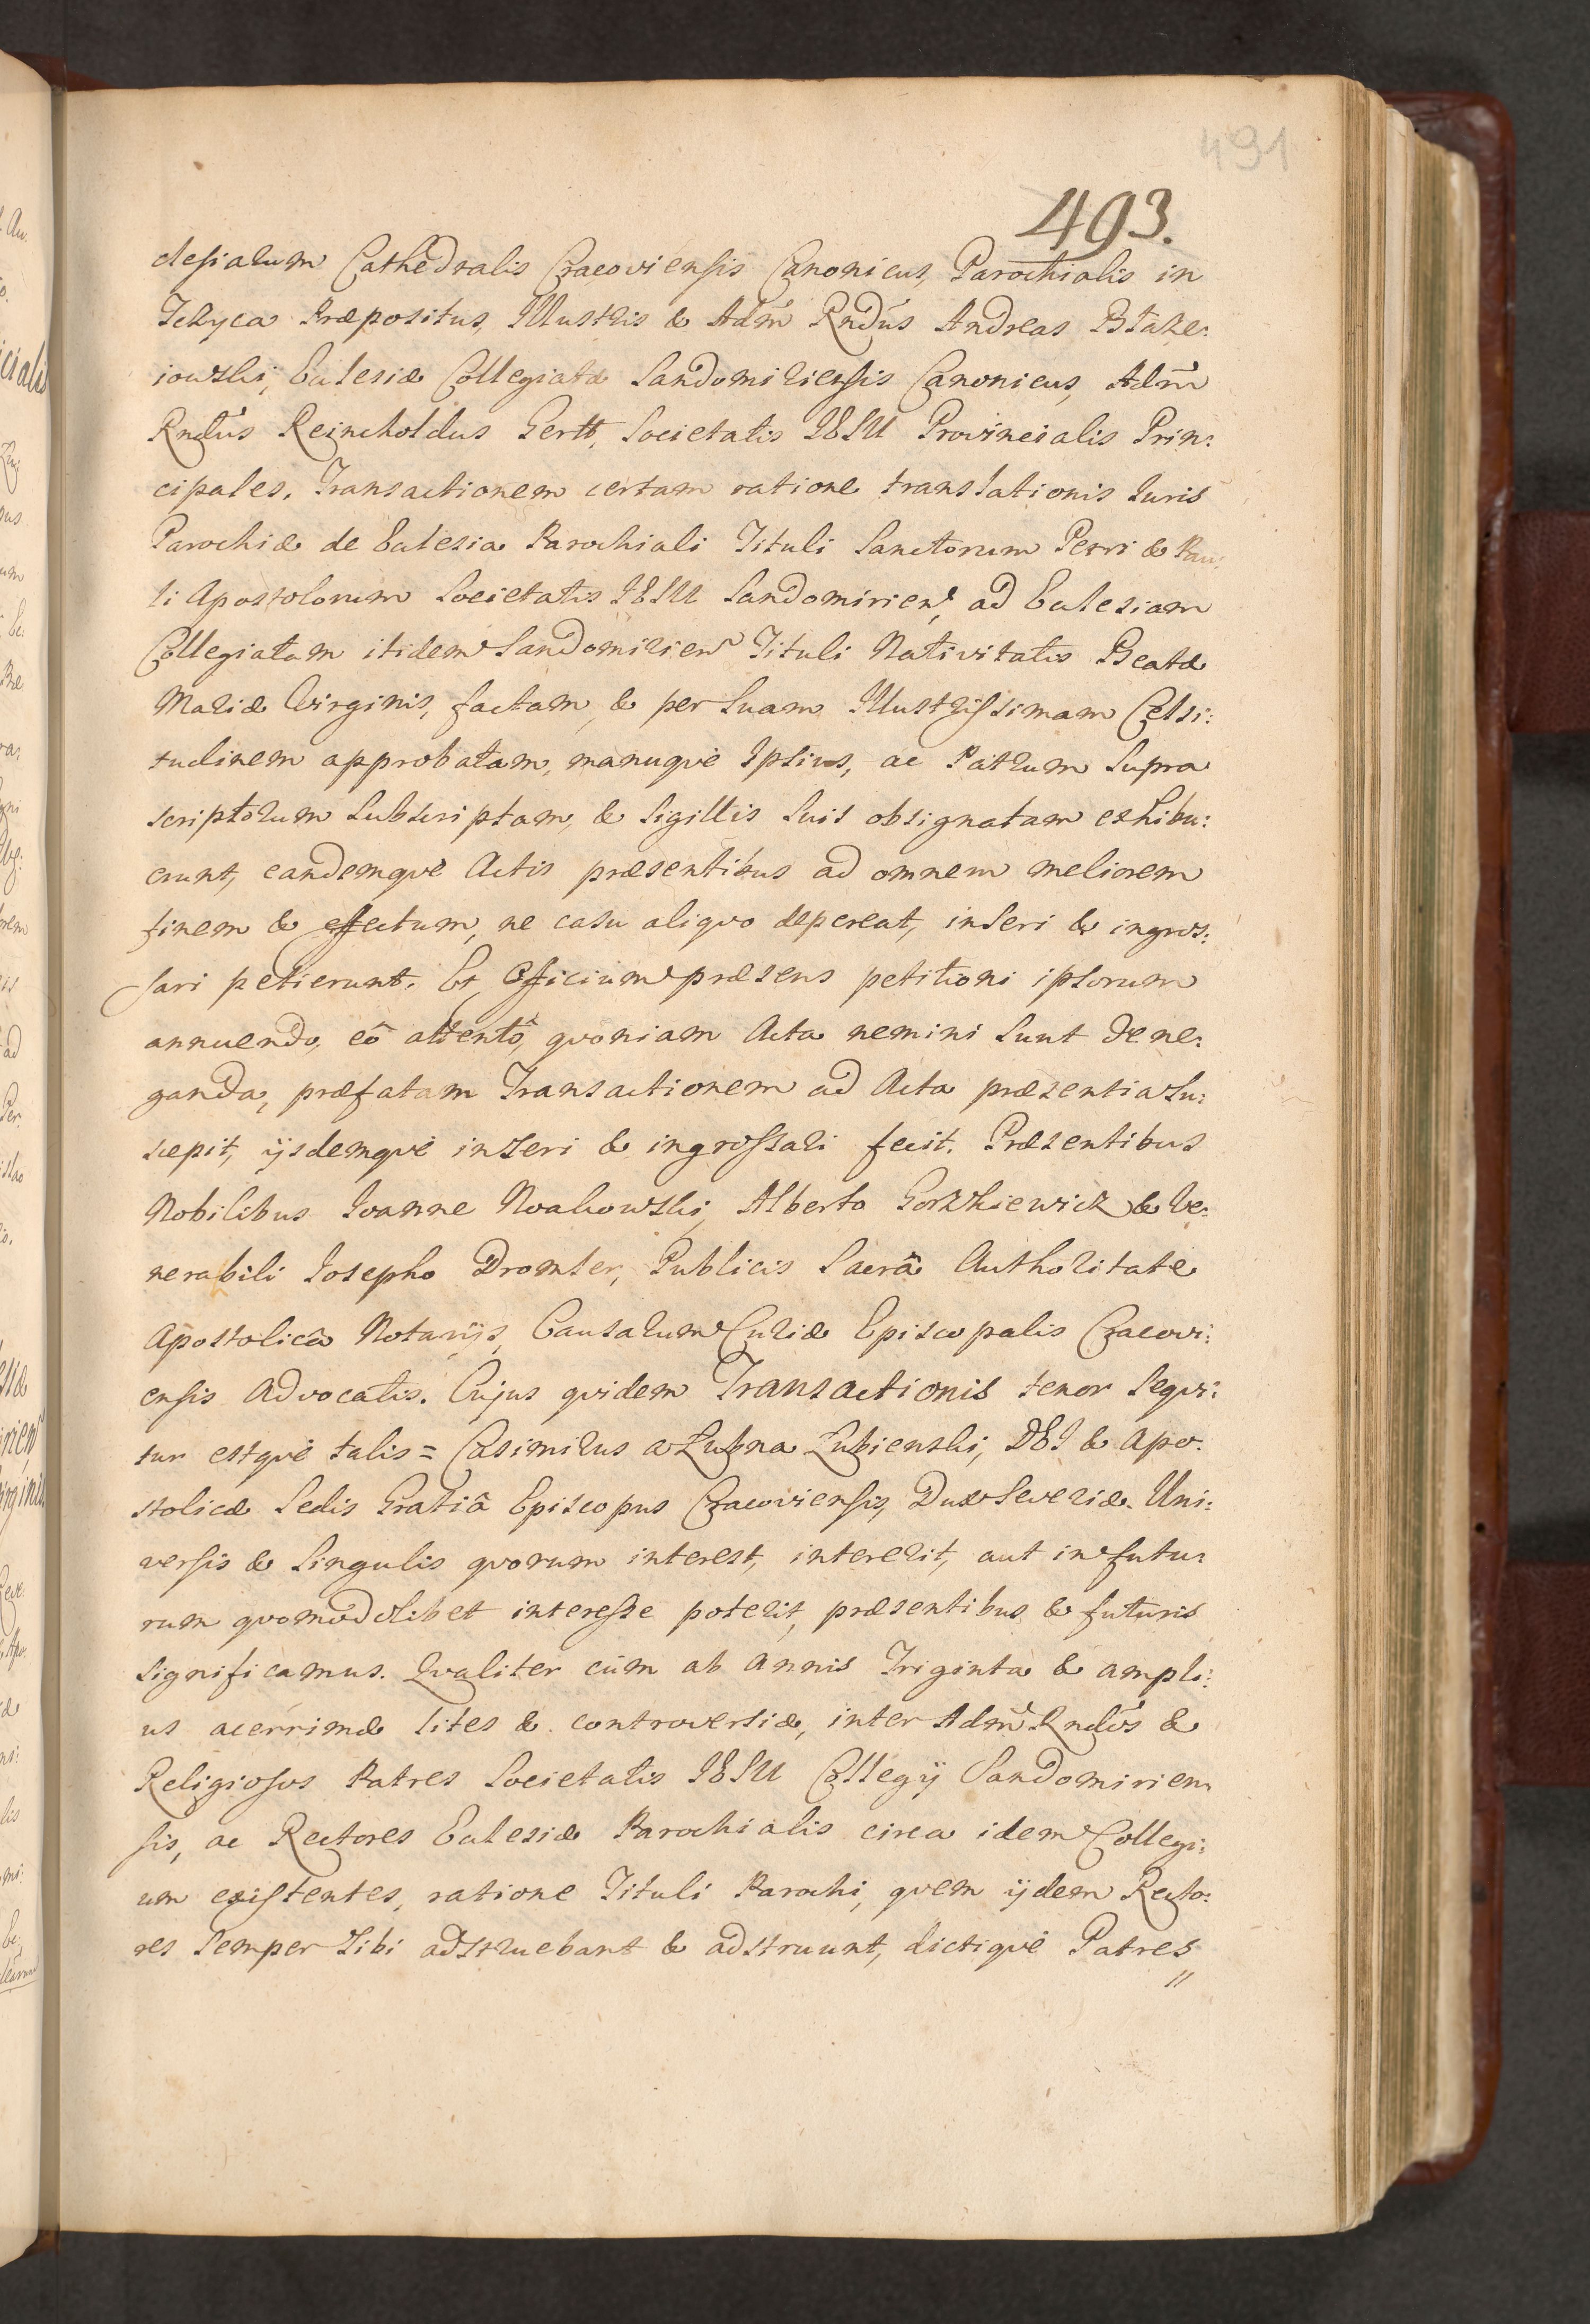 491
493.
clesiarum Cathedralis Cracoviensis Canonicus, Parochialis in
Præpositus, Illustris & Adm̃ Rndũs Andreas Błaze:
iowski, Ecclesiæ Collegiatæ Sandomiriensis Canonicus, Adm̃
Rndũs Reincholdus Gertt, Societatis IESU Provincialis Prin:
cipales. Transactionem certam ratione translationis Iuris
Parochiæ de Ecclesia Parochiali Tituli Sanctorum Petri & Pau:
li Apostolorum Societatis IESU Sandomirien, ad Ecclesiam
Collegiatam itidem Sandomirien Tituli Nativitatis Beatæ
Mariæ Virginis, factam, & per Suam Illustrissimam Celsi:
tudinem approbatam, manuqve Ipsius, ac Patrum Supra
scriptorum Subscriptam, & Sigillis Suis obsignatam exhibu:
erunt, eandemqve Actis præsentibus ad omnem meliorem
finem & effectum, ne casu aliqvo depereat, inseri & ingros:
sari petierunt. Et Officium præsens petitioni ipsorum
annuendo, eô attentô, qvoniam Acta nemini Sunt dene:
ganda, præfatam Transactionem ad Acta præsentia Su:
scepit, ijsdemqvè inseri & ingrossari fecit. Præsentibus
Nobilibus Ioanne Noakowski, Alberto Gorzkiewicz & Ve:
nerabili Iosepho Dromler, Publicis Sacrâ Authoritate
Apostolicâ Notarijs, Causarum Curiæ Episcopalis Cracovi:
ensis Advocatis. Cujus qvidem Transactionis tenor Seqvi:
tur estqvè talis = Casimirus a Łubna Łubienski, DEI & Apo:
stolicæ Sedis Gratiâ Episcopus Cracoviensis, Dux Severiæ. Uni:
versis & Singulis qvorum interest, intererit, aut in futu:
rum qvomodolibet interesse poterit, præsentibus & futuris
Significamus. Qvaliter cùm ab Annis Triginta & ampli:
us acerrimæ lites & controversiæ, inter Adm̃ Rndõs &
Religiosos Patres Societatis IESU Collegij Sandomirien:
sis, ac Rectores Ecclesiæ Parochialis circa idem Collegi:
um existentes, ratione Tituli Parochi, qvem ijdem Recto:
res Semper Sibi adstruebant & adstruunt, dictiqvè Patres